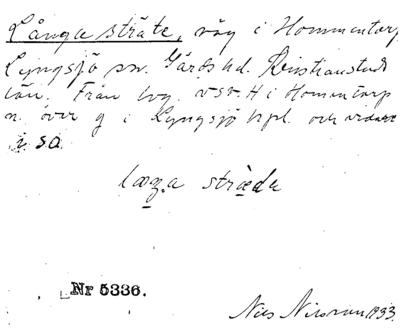 Långa sträte, väg i Hommentorp
Lyngsjö sn. Gärds hd. Kristianstads
län. Från byg. v.s.v. H i Hommentorp
n. över g i Lyngsjö kpl. över
i s.o.
sträda
Nr 5336.
Nils Nilsson 1933.